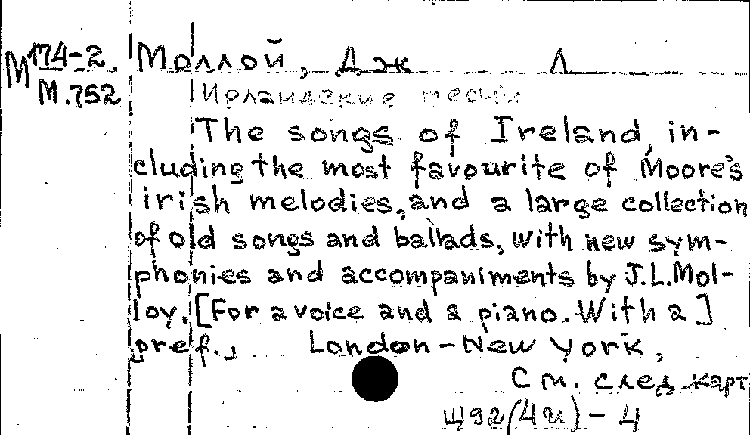 М 174-2 Моллой, Дж Л
М.752 Ирландские песни
The songs of Ireland, in-
cluding the most favourite of Moore's
irish melodies, and a large collection
of old songs and ballads, with new sym-
phonies and accompaniments by J.L. Mol-
loy. [For a voice and a piano. With a]
pref., London - New York,
См. след карт
Щ92(4И) - 4